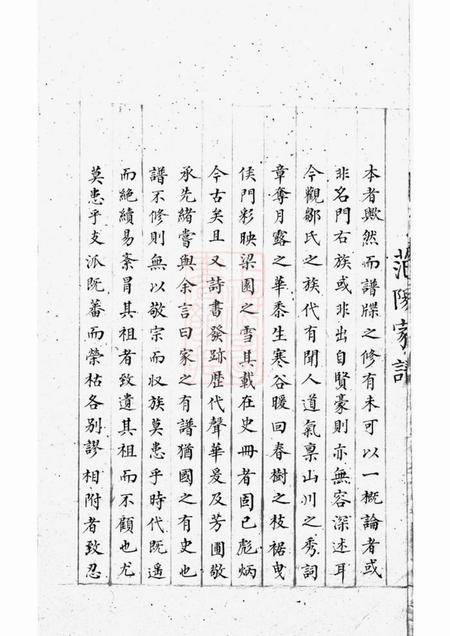 范陽家譜
本者歟然而譜牒之修有未可以一概論者或
非名門右族或非出自賢豪則亦無容深述耳
今觀鄒氏之族代有聞人道氣稟山川之秀詞
章奪月露之華黍生寒谷暖回春樹之枝裾曳
侯門彩映梁園之雪其載在史冊者固已彪炳
今古矣且又詩書發跡歷代聲華爰及芳圃敬
承先緒嘗與余言曰家之有譜猶國之有史也
譜不修則無以敬宗而収族莫患乎時代既遥
而絶續易紊冐其祖者致遺其祖而不顧也尤
莫患乎支派既蕃而榮枯各别謬相附者致忍